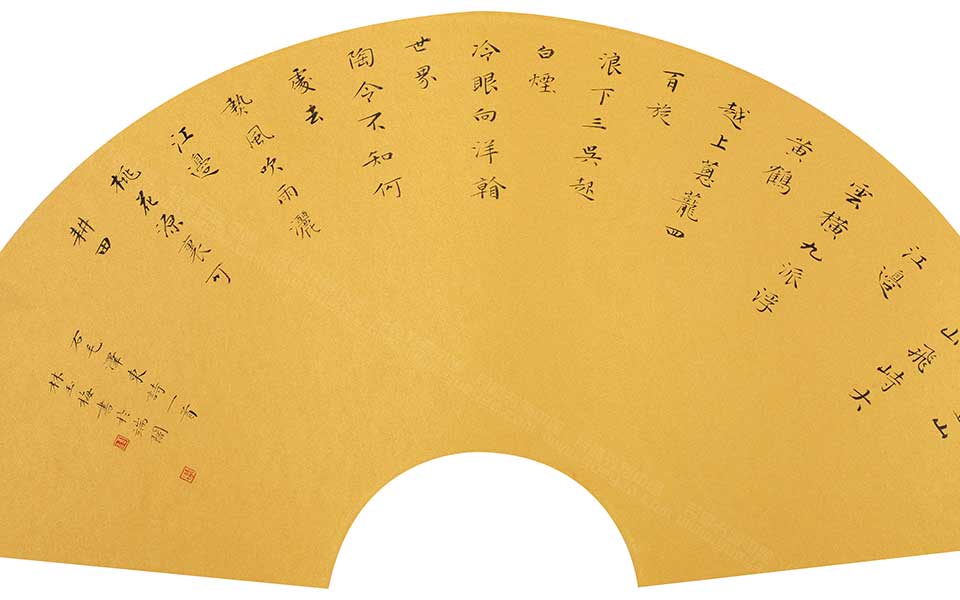 山
山飛峙大
江邊
雲橫九派浮
黃鶴
越上蔥蘢四
百旋
浪下三吳起
白煙
冷眼向洋翰
世界
陶令不知何
處去
熱風吹雨灑
江邊
桃花源裏可
耕田
右毛澤東詩一首
林玉梅書於端閣